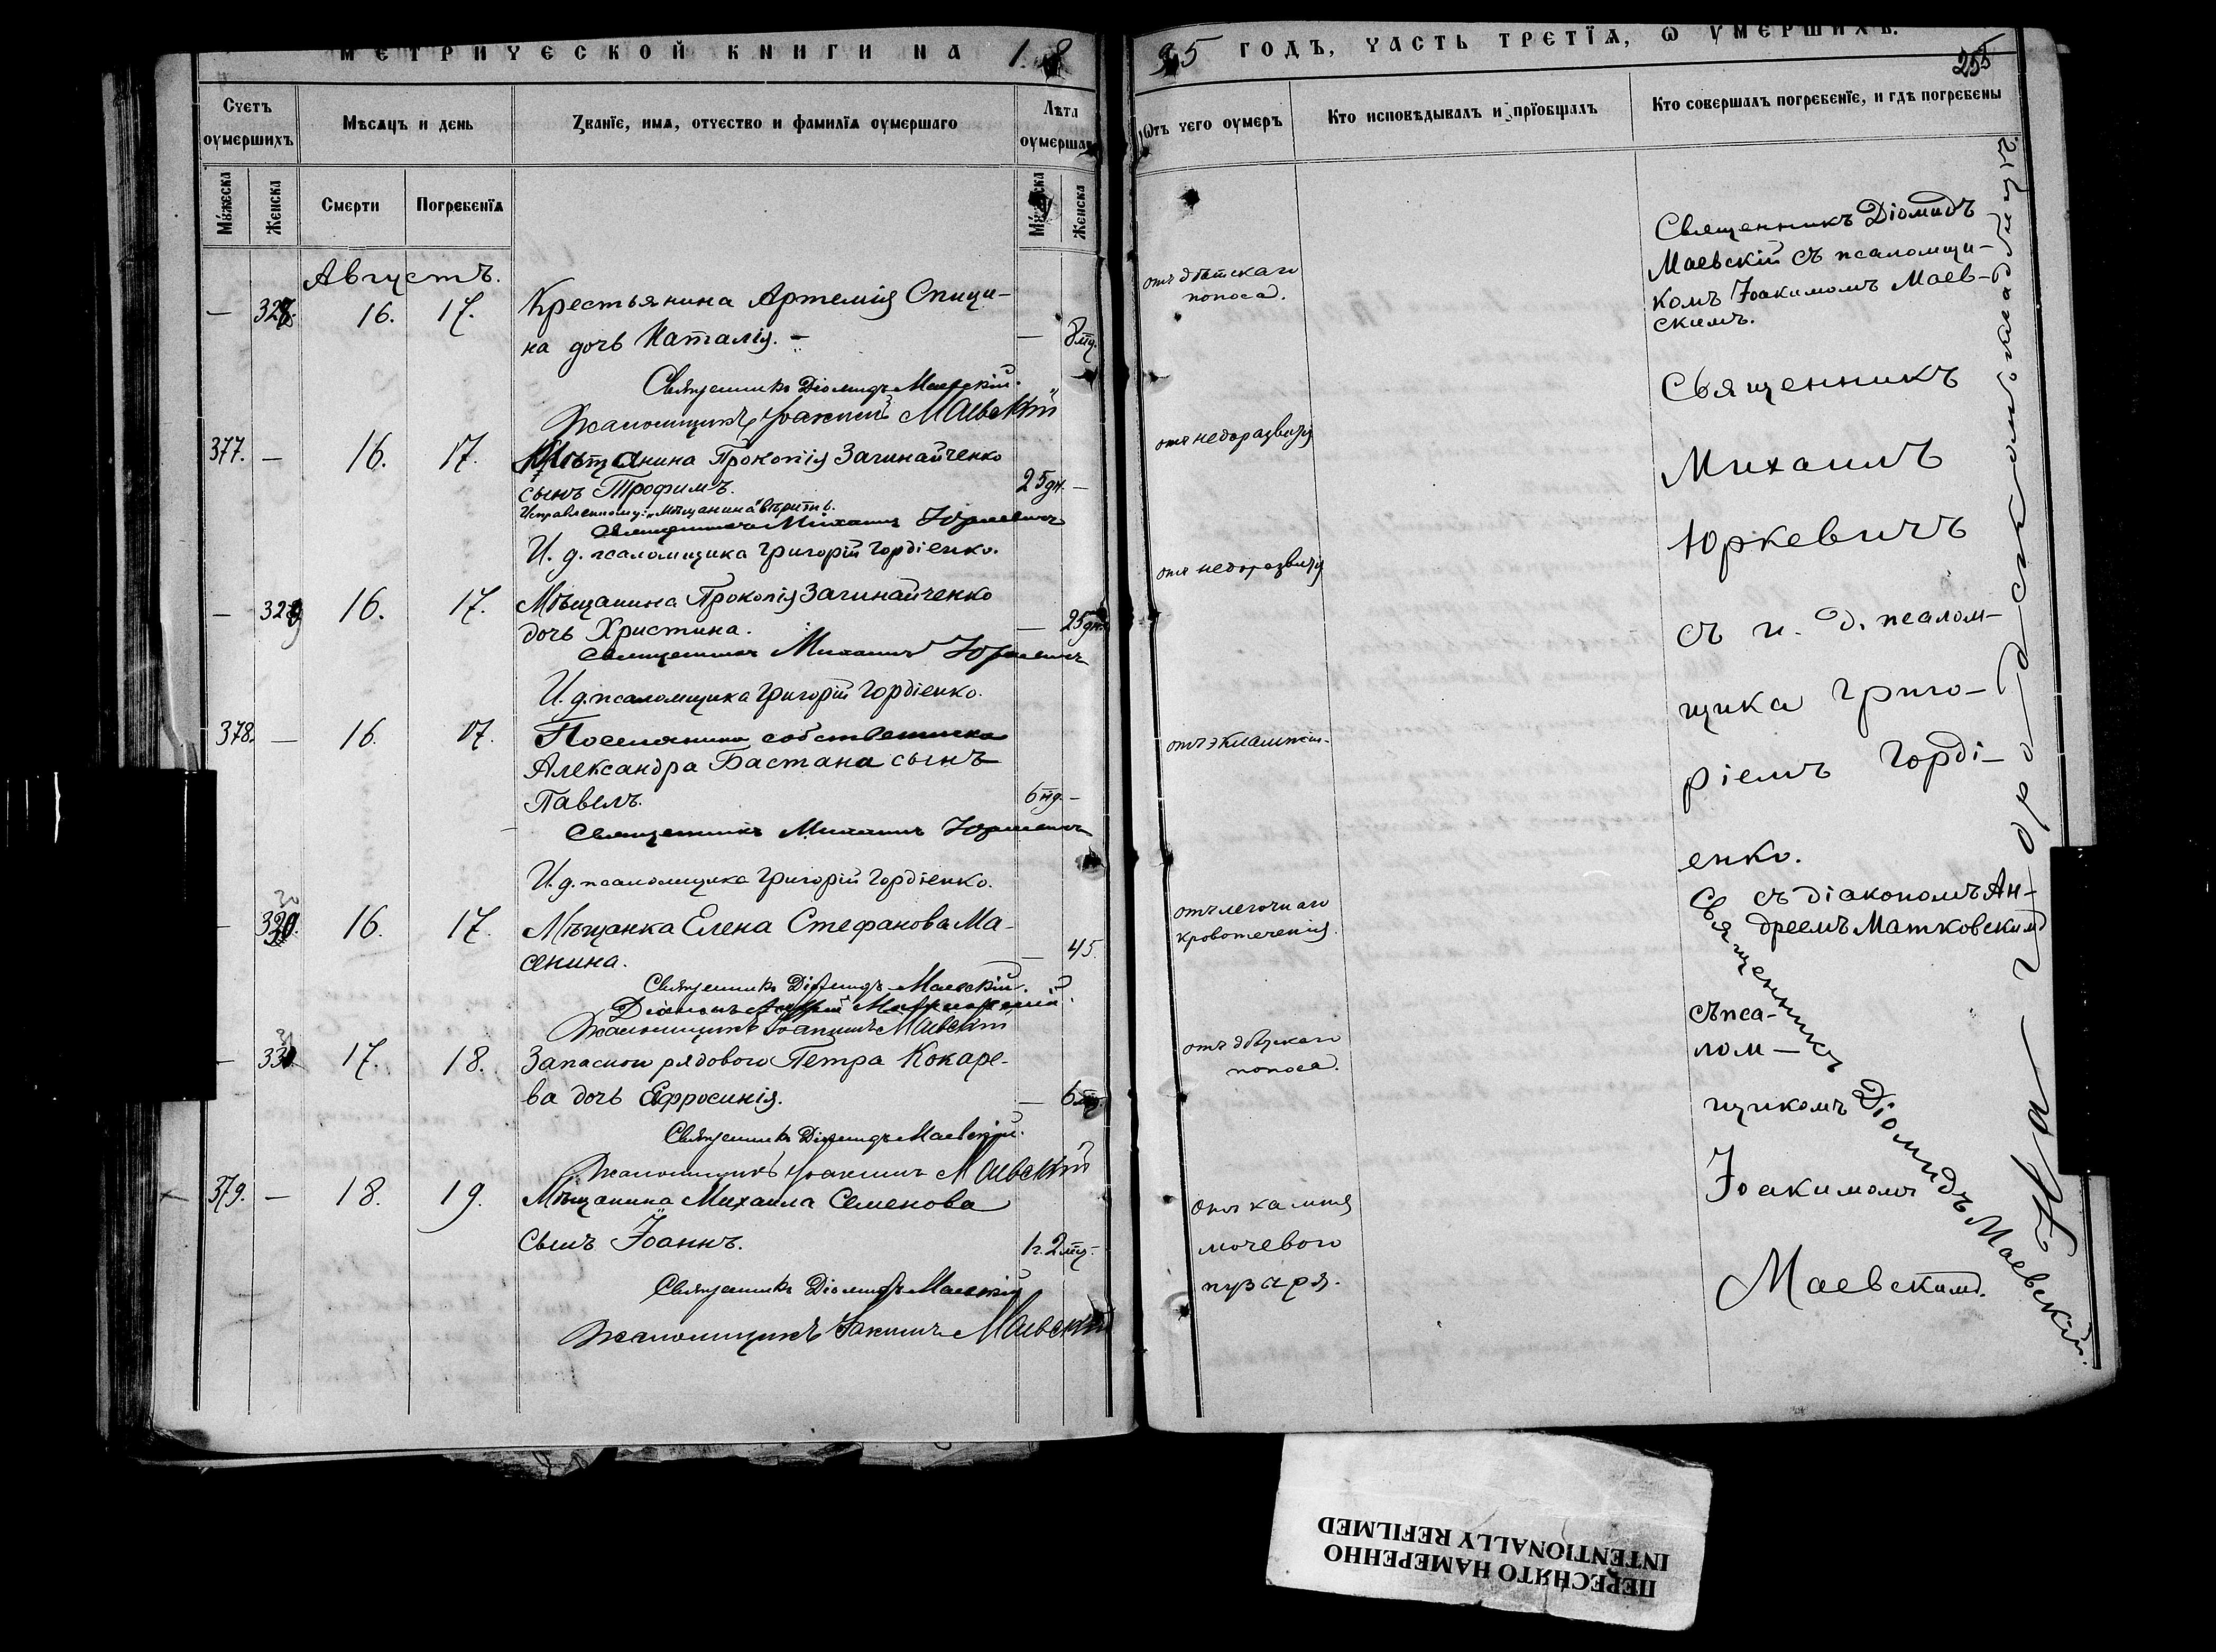 МЕТРИЧЕСКОЙ КНИГИ НА 18
95 ГОДЪ, ЧАСТЬ ТРЕТІЯ, Ѡ УМЕРШИХЪ.
255
Счетъ оумершихъ
Мѣсяцъ и день
Званіе, имя, отчество и фамилія оумершаго
Лѣта оумершаго
Ѿтъ чего оумеръ
Кто исповѣдывалъ и пріобщалъ
Кто совершалъ погребеніе, и гдѣ погребены
Мужеска
Женска
Смерти
Погребенія
Мужеска
Женска
Августъ.
— 328. 16. 17. Крестьянина Артемія Спици-
на дочь Наталія. — — 8 мц.
отъ дѣтскаго
поноса.
Священникъ Діомидъ Маевскій.
Псаломщикъ Іоакимъ Маевскій
Священникъ Діомидъ
Маевскій съ псаломщи-
комъ Іоакимомъ Маев-
скимъ.
377. — 16. 17. Мѣщанина Прокопія Загинайченко
сынъ Трофимъ. 25 дн. —
отъ недоразвитія
Исправленному: „Мѣщанина" вѣрить.
Священникъ Михаилъ Юркевичъ
И. д. псаломщика Григорій Гордіенко.
— 329 16. 17. Мѣщанина Прокопія Загинайченко
дочь Христина. — 25 дн.
отъ недоразвитія
Священникъ Михаилъ Юркевичъ
И. д. псаломщика Григорій Гордіенко.
378. — 16. 17. Поселянина собственника
Александра Бастана сынъ
Павелъ. 6 нд. —
отъ эклампсіи.
Священникъ Михаилъ Юркевичъ
И. д. псаломщика Григорій Гордіенко.
Священникъ
Михаилъ
Юркевичъ
съ и. д. псалом-
щика Григо-
ріемъ Горді-
енко.
— 330. 16. 17. Мѣщанка Елена Стефанова Ма-
сенина. — 45.
отъ легочнаго
кровотеченія.
Священникъ Діомидъ Маевскій.
Діаконъ Андрей Матковскій.
Псаломщикъ Іоакимъ Маевскій
съ діакономъ Ан-
дреемъ Матковскимъ
— 331. 17. 18. Запаснаго рядового Петра Кокаре-
ва дочь Ефросинія. — 6 мц.
отъ дѣтскаго
поноса.
Священникъ Діомидъ Маевскій.
Псаломщикъ Іоакимъ Маевскій
379. — 18. 19. Мѣщанина Михаила Семенова
сынъ Іоаннъ. 1 г. 2 мц. —
отъ камня
мочевого
пузыря.
Священникъ Діомидъ Маевскій
Псаломщикъ Іоакимъ Маевскій
Священникъ Діомидъ Маевскій.
съ пса-
лом-
щикомъ
Іоакимомъ
Маевскимъ.
На городскомъ кладбищѣ.
ПЕРЕСНЯТО НАМЕРЕННО
INTENTIONALLY REFILMED